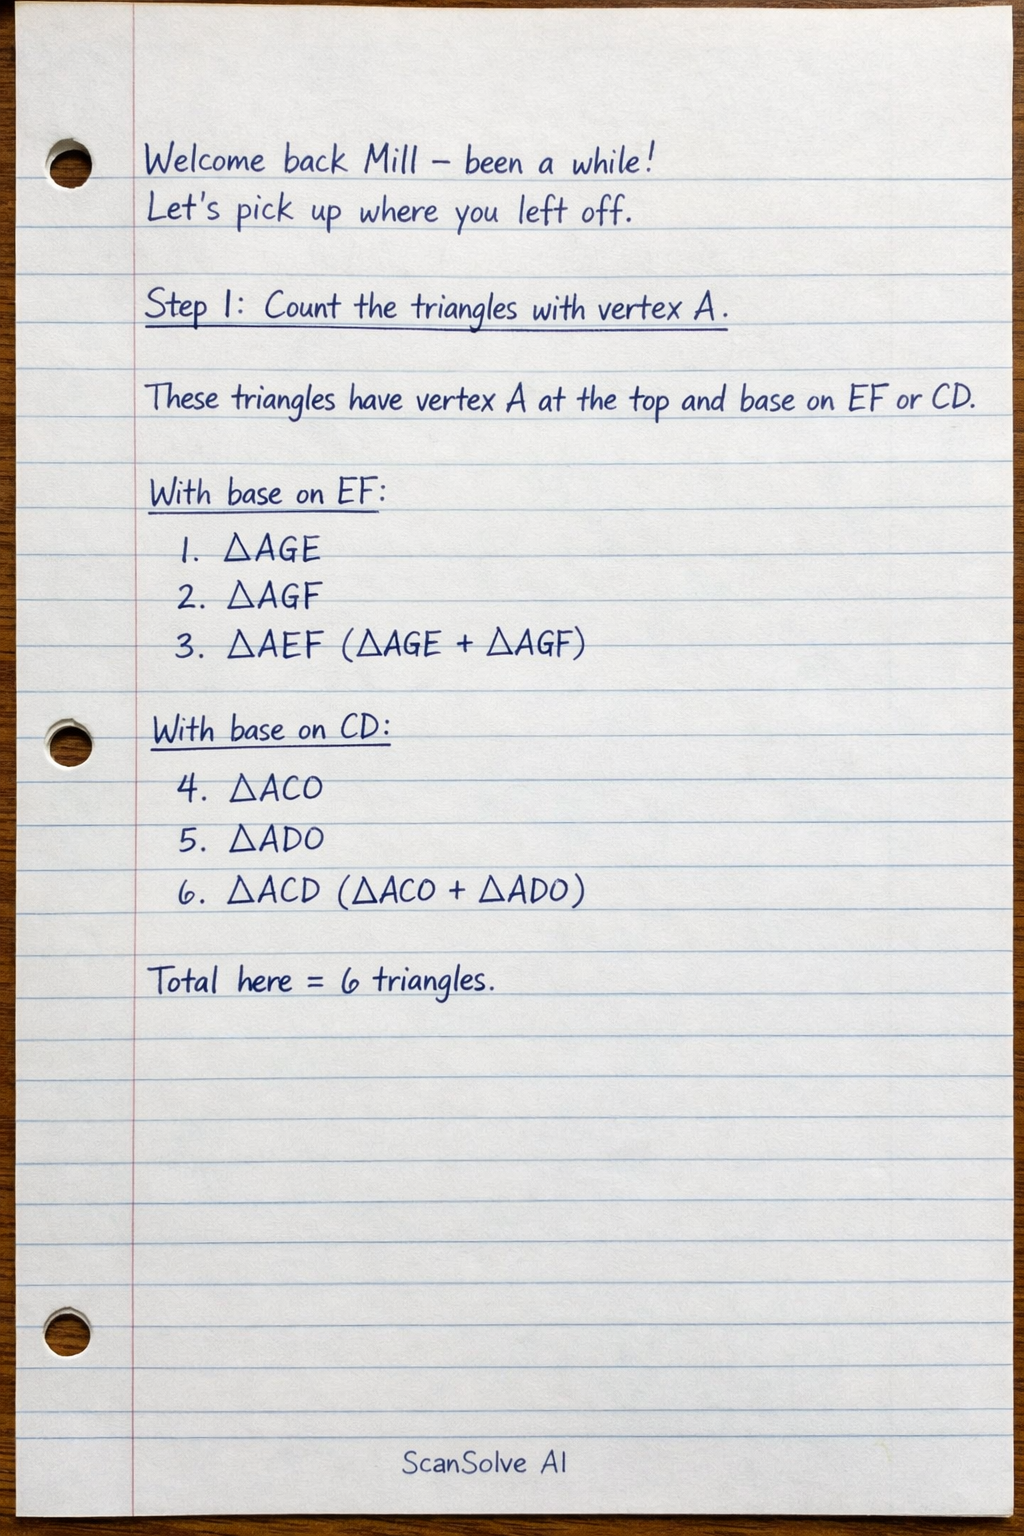 Welcome back Mill – been a while!
Let's pick up where you left off.
Step 1: Count the triangles with vertex A.
These triangles have vertex A at the top and base on EF or CD.
With base on EF:
1. △AGE
2. △AGF
3. △AEF (△AGE + △AGF)
With base on CD:
4. △ACO
5. △ADO
6. △ACD (△ACO + △ADO)
Total here = 6 triangles.
ScanSolve AI